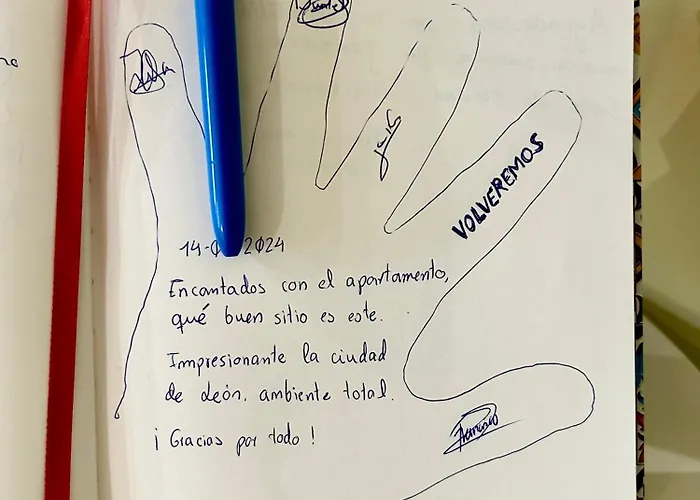 VOLVEREMOS
14-0 2024
Encantados con el apartamento,
qué buen sitio es este.
Impresionante la ciudad
de León. ambiente total.
¡Gracias por todo!
Francisco